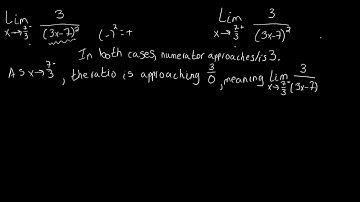 Lim x→7/3⁻ 3/(3x-7)² (-)²=+ Lim x→7/3⁺ 3/(3x-7)²
In both cases, numerator approaches/is 3.
As x→7/3⁻, the ratio is approaching 3/0, meaning lim x→7/3⁻ 3/(3x-7)